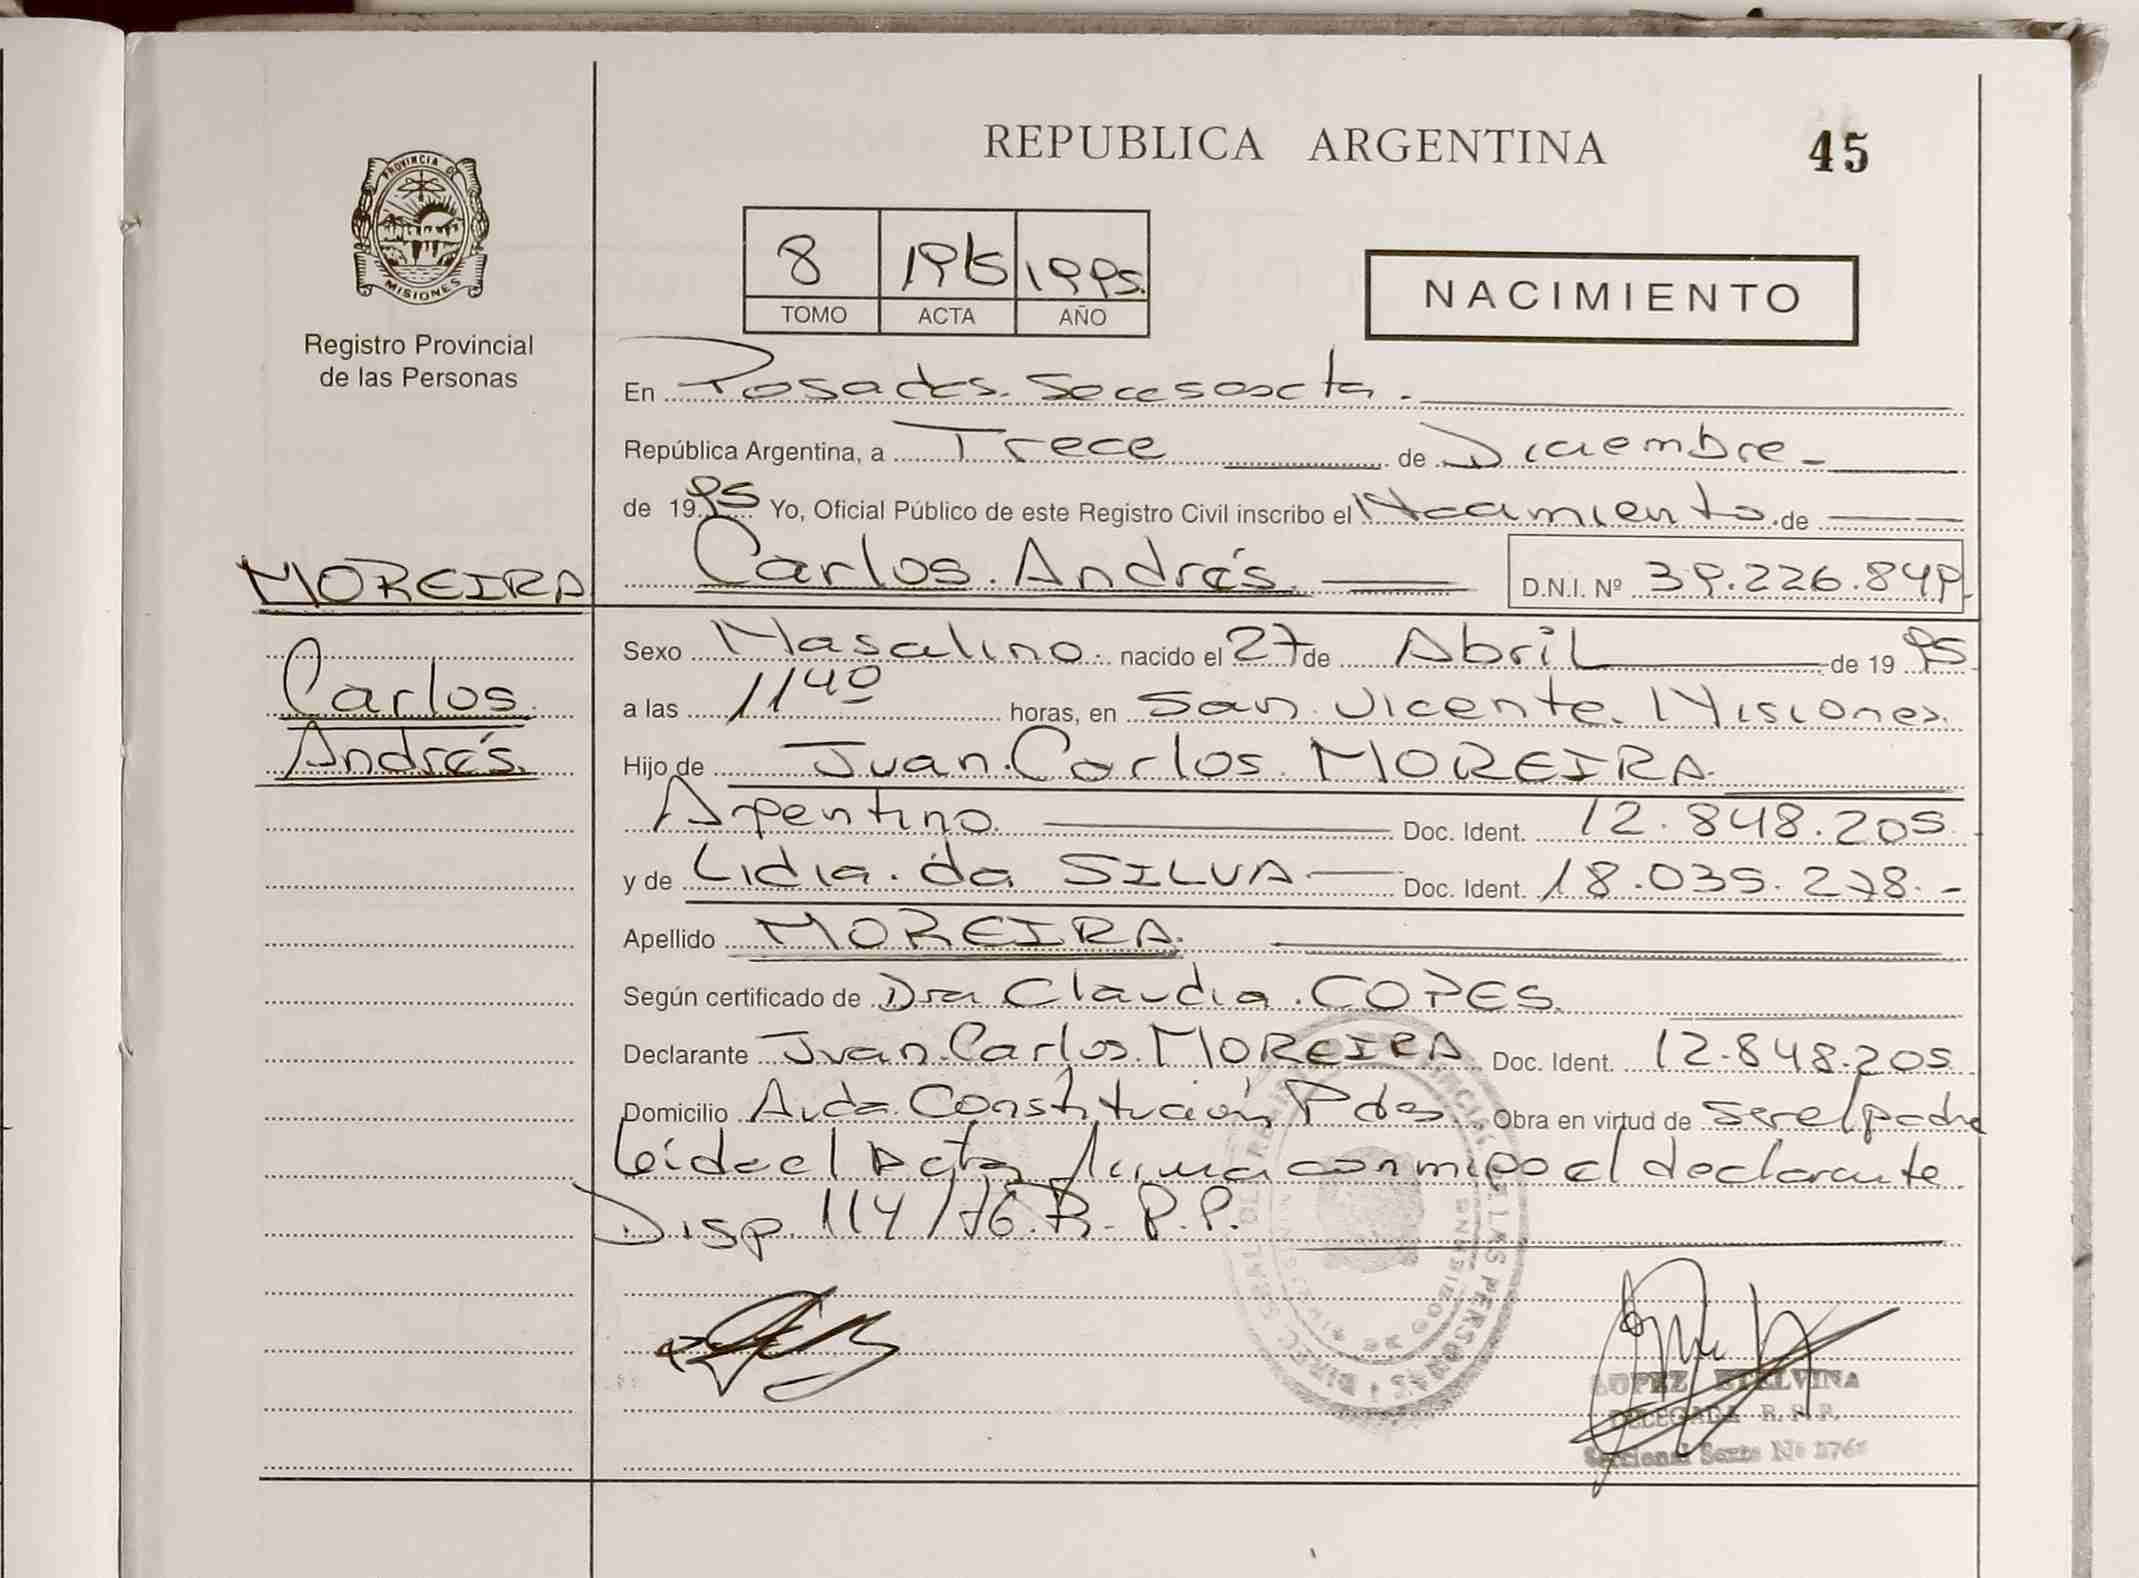 REPUBLICA ARGENTINA
45
PROVINCIA DE
MISIONES
Registro Provincial
de las Personas
8 1995.
TOMO ACTA AÑO
NACIMIENTO
En Posadas.
República Argentina, a Trece de Diciembre
de 1995 Yo, Oficial Público de este Registro Civil inscribo el Nacimiento de
Carlos Andrés D.N.I. Nº 39.226.849
MOREIRA
Carlos
Andrés
Sexo Masculino nacido el 27 de Abril de 1995
a las 1140 horas, en San Vicente. Misiones.
Hijo de Juan Carlos MOREIRA
Argentino Doc. Ident. 12.848.205
y de Lidia da SILVA Doc. Ident. 18.035.278.-
Apellido MOREIRA
Según certificado de Dra Claudia COPES
Declarante Juan Carlos MOREIRA Doc. Ident. 12.848.205
Domicilio Avda. Constitución Pdas Obra en virtud de ser el padre
Leída el Acta firma conmigo el declarante
Disp. 114/76.R.P.P.
LOPEZ ETELVINA
DELEGADA R.P.P.
Seccional Sexta Nº